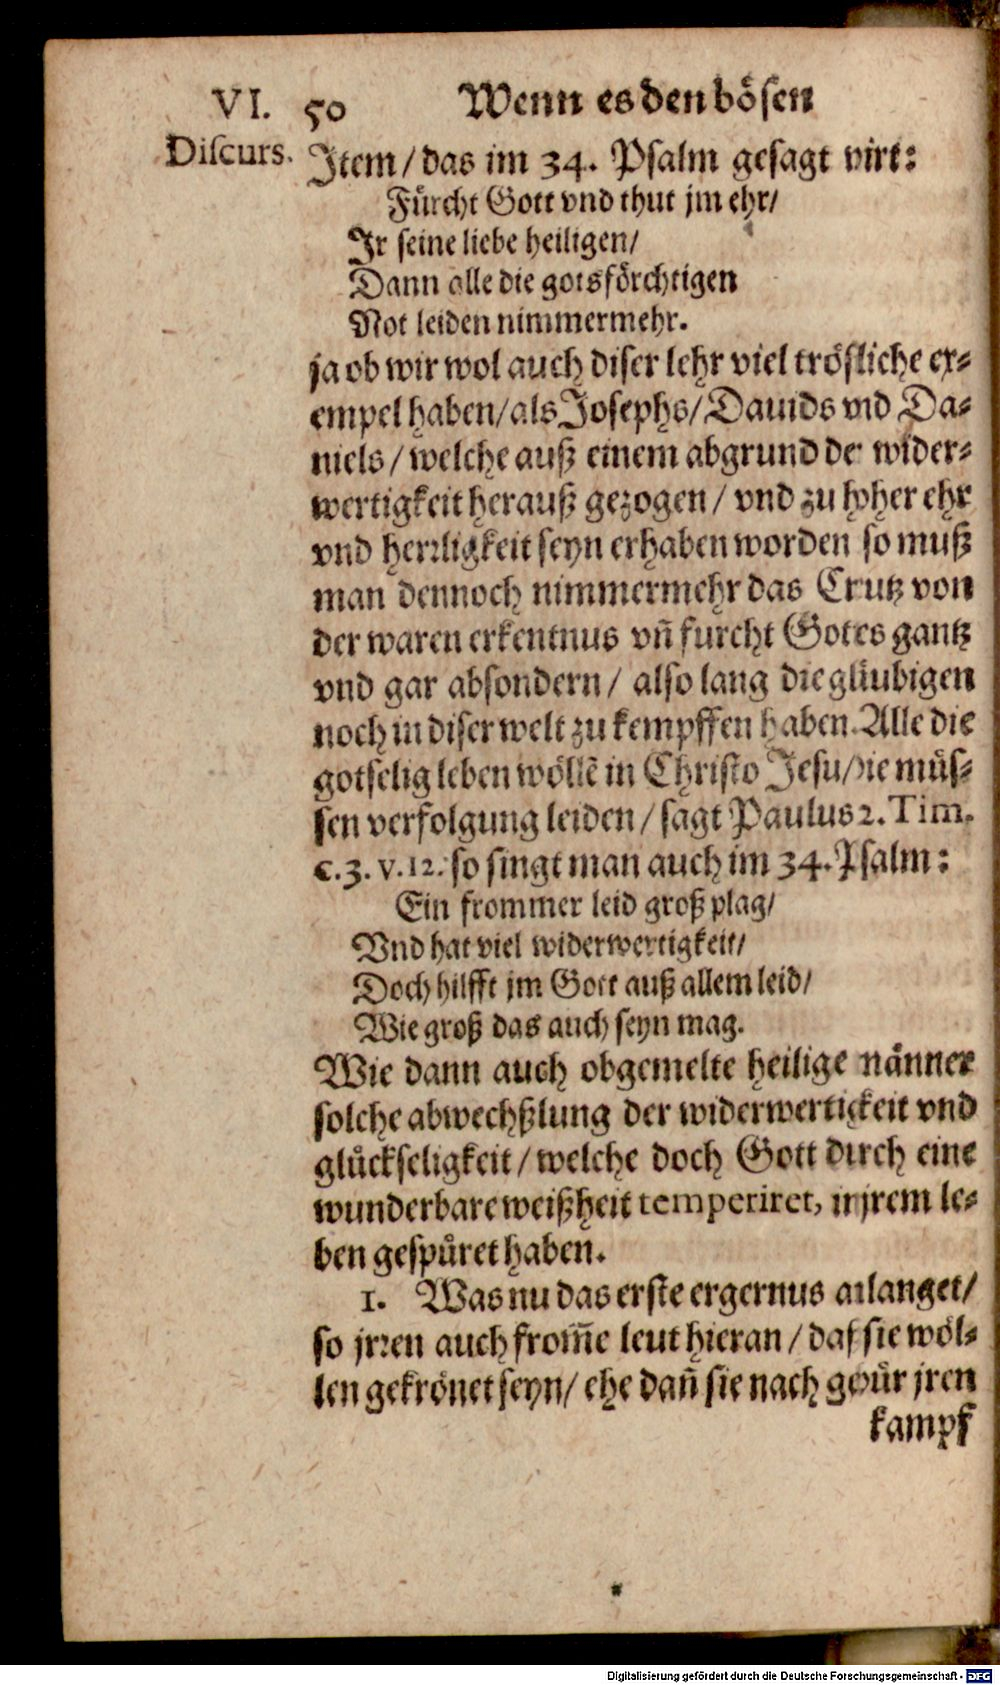 VI. 50 Wenn es den bösen
Discurs.
Item/ das im 34. Psalm gesagt wirt:
Fürcht Gott vnd thut jm ehr/
Ir seine liebe heiligen/
Dann alle die gotsförchtigen
Not leiden nimmermehr.
ja ob wir wol auch diser lehr viel tröstliche ex-
empel haben/ als Josephs/ Dauids vnd Da-
niels/ welche auß einem abgrund der wider-
wertigkeit herauß gezogen/ vnd zu hoher ehr
vnd herrligkeit seyn erhaben worden so muß
man dennoch nimmermehr das Crutz von
der waren erkentnus vn̄ furcht Gottes gantz
vnd gar absondern/ also lang die gläubigen
noch in diser welt zu kempffen haben. Alle die
gotselig leben wöllē in Christo Jesu/ die müs-
sen verfolgung leiden/ sagt Paulus 2. Tim.
c. 3. v. 12. so singt man auch im 34. Psalm:
Ein frommer leid groß plag/
Vnd hat viel widerwertigkeit/
Doch hilfft jm Gott auß allem leid/
Wie groß das auch seyn mag.
Wie dann auch obgemelte heilige männer
solche abwechßlung der widerwertigkeit vnd
glückseligkeit/ welche doch Gott durch eine
wunderbare weißheit temperiret, in jrem le-
ben gespüret haben.
1. Was nu das erste ergernus anlanget/
so jrren auch from̄e leut hieran/ daß sie wöl-
len gekrönet seyn/ ehe dan̄ sie nach gebür jren
kampf
Digitalisierung gefördert durch die Deutsche Forschungsgemeinschaft - DFG